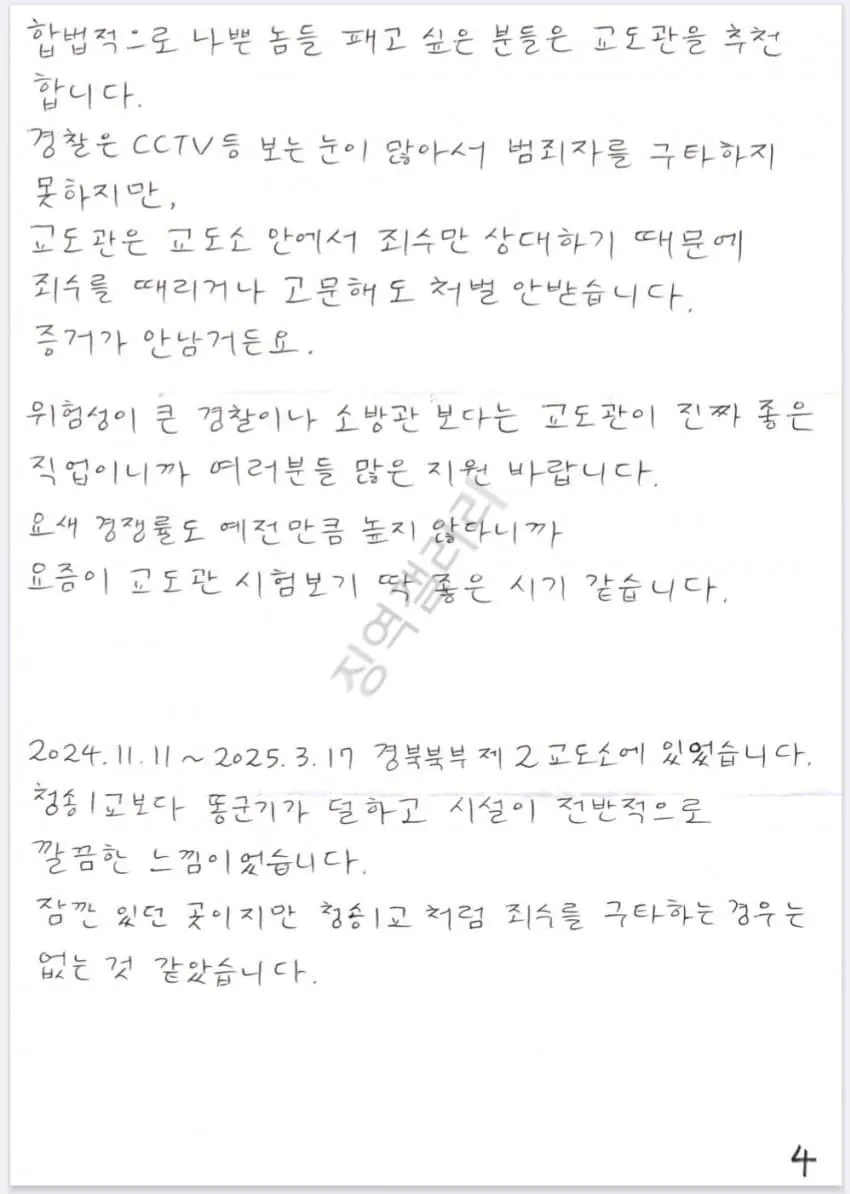 합법적으로 나쁜 놈들 패고 싶은 분들은 교도관을 추천
합니다.
경찰은 CCTV등 보는 눈이 많아서 범죄자를 구타하지
못하지만,
교도관은 교도소 안에서 죄수만 상대하기 때문에
죄수를 때리거나 고문해도 처벌 안받습니다.
증거가 안남거든요.
위험성이 큰 경찰이나 소방관 보다는 교도관이 진짜 좋은
직업이니까 여러분들 많은 지원 바랍니다.
요새 경쟁률도 예전만큼 높지 않다니까
요즘이 교도관 시험보기 딱 좋은 시기 같습니다.
징역갤러리
2024.11.11 ~ 2025.3.17 경북북부 제2교도소에 있었습니다.
청송1교보다 똥군기가 덜하고 시설이 전반적으로
깔끔한 느낌이었습니다.
잠깐 있던 곳이지만 청송1교 처럼 죄수를 구타하는 경우는
없는 것 같았습니다.
4